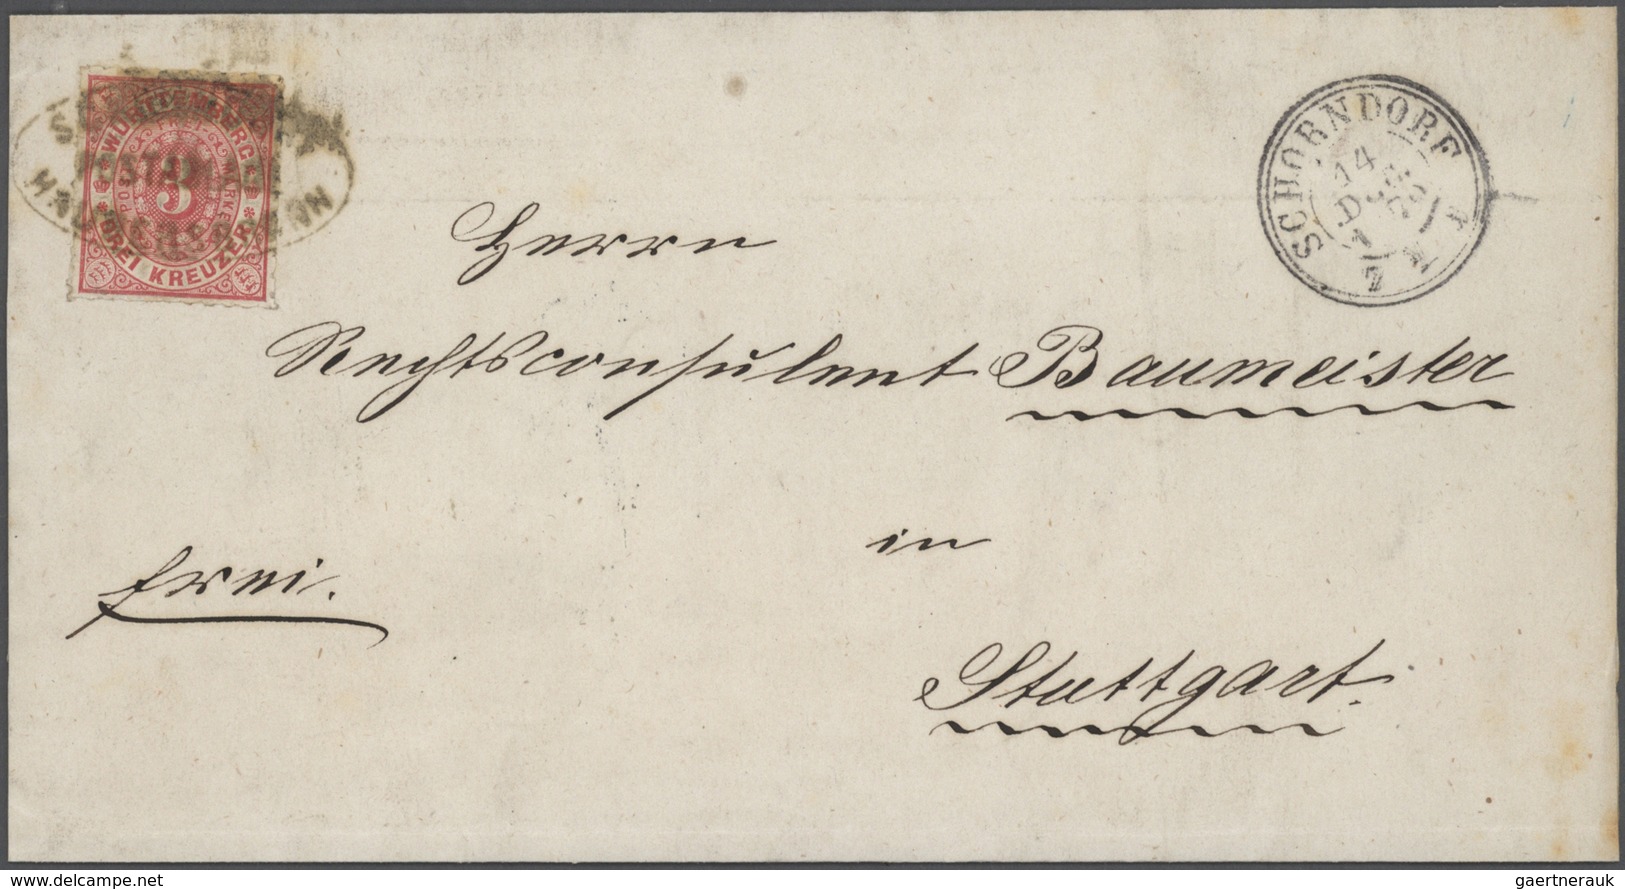 WÜRTTEMBERG
POST MARKE
3
DREI KREUZER
SCHORNDORF
14
Herrn
Rechtsconsulent Baumeister
in
frei.
Stuttgart.
DELCAMPE.NET
gaertnerauk